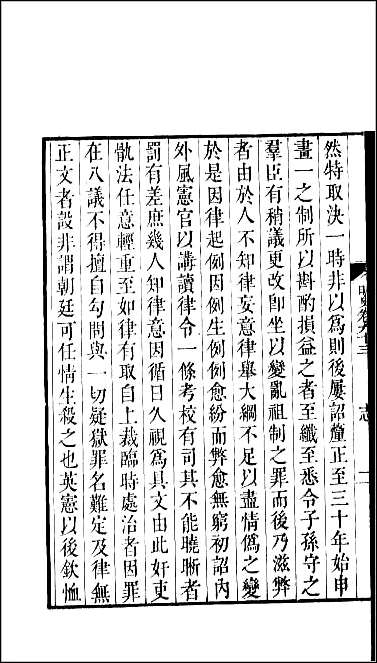 然特取決一時非以為則後屢詔釐正至三十年始申
畫一之制所以斟酌損益之者至纖至悉令子孫守之
羣臣有稍議更改卽坐以變亂祖制之罪而後乃滋弊
者由於人不知律妄意律舉大綱不足以盡情偽之變
於是因律起例因例生例例愈紛而弊愈無窮初詔內
外風憲官以講讀律令一條考校有司其不能曉晰者
罰有差庶幾人知律意因循日久視為具文由此奸吏
骩法任意輕重至如律有取自上裁臨時處治者因罪
在八議不得擅自勾問與一切疑獄罪名難定及律無
正文者設非謂朝廷可任情生殺之也英憲以後欽恤
志